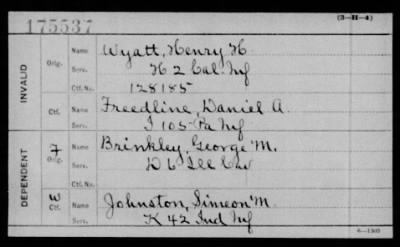 175537
(3-H-4)
INVALID
Orig.
Name Wyatt, Henry H.
Serv. H 2 Cal. Inf
Ctf. No. 128185
Ctf.
Name Freedline, Daniel A.
Serv. I 105 Pa Inf
DEPENDENT
F
Orig.
Name Brinkley, George M.
Serv. D 6 Ill Cav
W
Ctf.
Name Johnston, Simeon M.
Serv. K 42 Ind Inf
6-1303